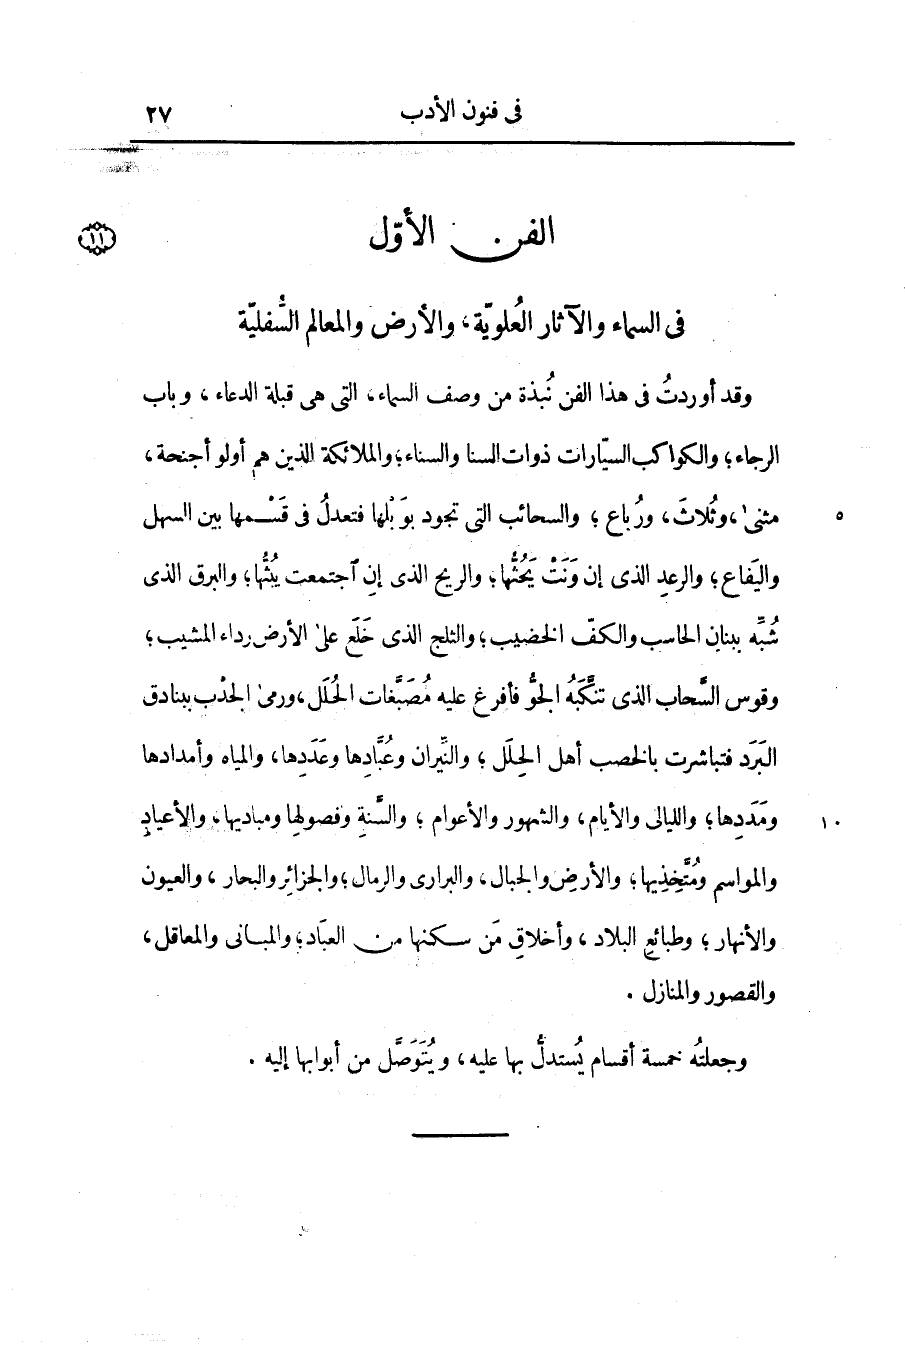 فى فنون الأدب ٢٧
الفن الأوّل
١١
فى السماء والآثار العُلويّة، والأرض والمعالم السُّفليّة
وقد أوردتُ فى هذا الفن نُبذة من وصف السماء، التى هى قبلة الدعاء، وباب
الرجاء؛ والكواكب السيّارات ذوات السنا والسناء؛ والملائكة الذين هم أولو أجنحة،
مثنىٰ، وثُلاثَ، ورُباع؛ والسحائب التى تجود بوَبْلها فتعدلُ فى قَسْمها بين السهل ٥
واليَفاع؛ والرعدِ الذى إن وَنَتْ يَحُثُّها؛ والريح الذى إن ٱجتمعت يَبُثُّها؛ والبرق الذى
شُبِّه ببنان الحاسب والكفّ الخضيب؛ والثلج الذى خَلَع علىٰ الأرض رداء المشيب؛
وقوس السَّحاب الذى تنكَّبَهُ الجوُّ فأفرغ عليه مُصَبَّغات الحُلَل، ورمىٰ الجدْب ببنادق
البَرَد فتباشرت بالخصب أهل الحِلَل؛ والنِّيران وعُبَّادها وعَدَدها، والمياه وأمدادها
ومَدَدِها؛ والليالى والأيام، والشهور والأعوام؛ والسَّنةِ وفصولها ومباديها، والأعيادِ ١٠
والمواسم ومُتَّخِذِيها؛ والأرضِ والجبال، والبرارى والرمال؛ والجزائرِ والبحار، والعيون
والأنهار؛ وطبائعِ البلاد، وأخلاقِ مَن سكنها من العبَاد؛ والمبانى والمعاقل،
والقصور والمنازل .
وجعلتُه خمسة أقسام يُستدلُّ بها عليه، ويُتَوَصَّل من أبوابها إليه .